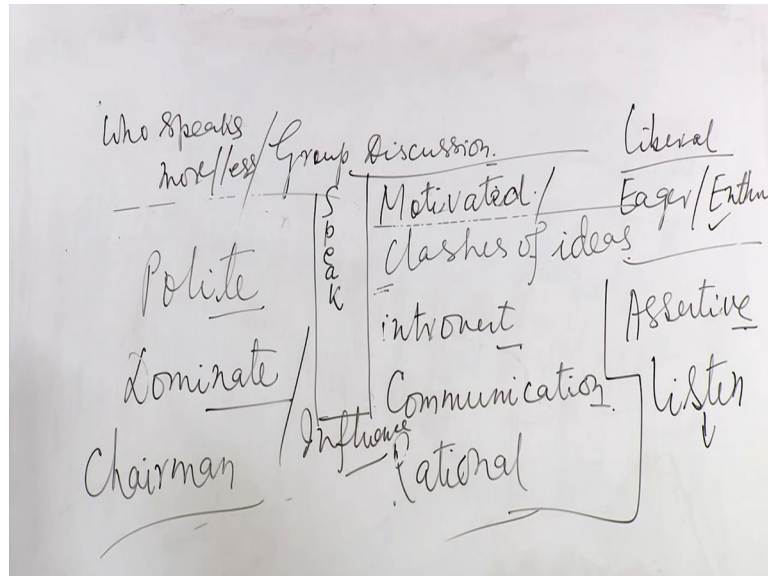 Who speaks
more/less/Group Discussion.
Liberal
Speak
Motivated/
Eager/Enthu
Clashes of ideas
Polite
introvert
Assertive
Dominate
Communication
Listen
Influence
Chairman
rational